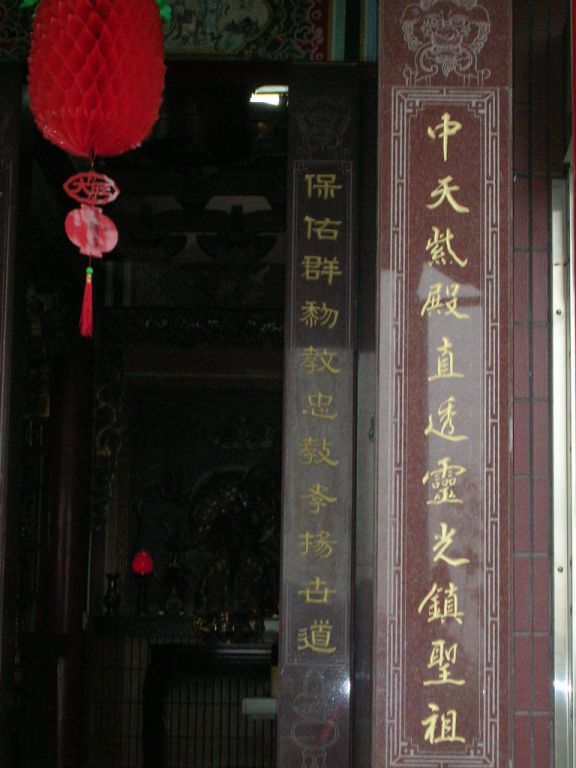 中天紫殿直透靈光鎮聖祖
保佑群黎教忠教孝揚古道